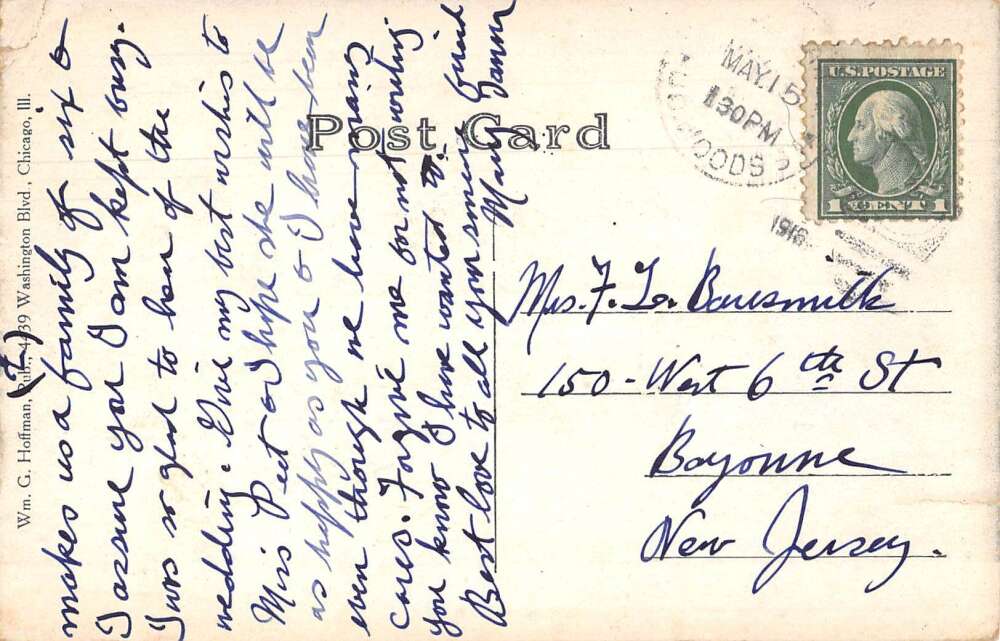 (2)
makes us a family of six &
I assure you I am kept busy.
I was so glad to hear of the
wedding. Give my best wishes to
Miss Peet & I hope she will be
as happy as you & I have been
even though we have many
cares. Forgive me for not writing
you know I have wanted to.
Best love to all your sincere friend
Mary
Post Card
Wm. G. Hoffman, Pub., 4439 Washington Blvd., Chicago, Ill.
MAY 15
130PM
1916
U.S. POSTAGE
1 CENT 1
Mrs. F. L.
150 - West 6th St
Bayonne
New Jersey.